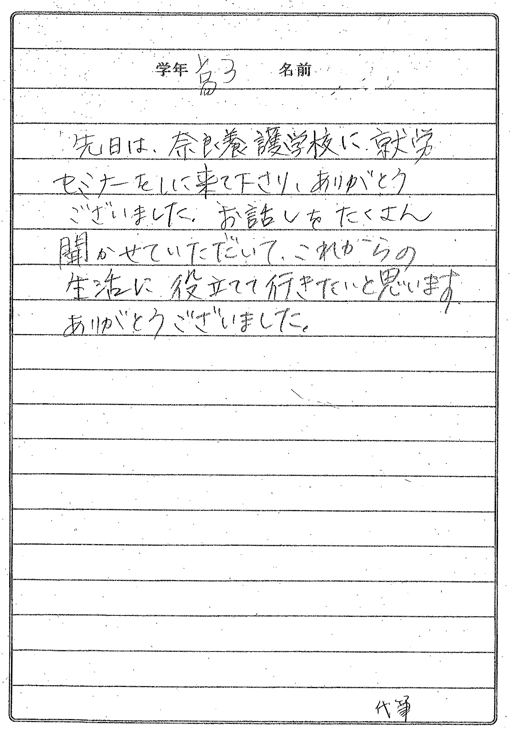 学年 高3 名前
先日は、奈良養護学校に、就労
セミナーをしに来て下さり、ありがとう
ございました。お話しをたくさん
聞かせていただいて、これからの
生活に役立てて行きたいと思います
ありがとうございました。
代筆